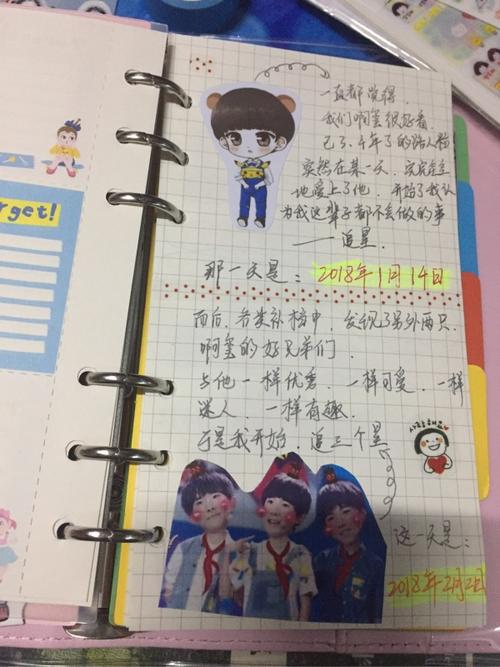 rget!
一直都觉得,
我们啊玺很好看.
已了.4年了的路人粉
突然在某一天,
地爱上了他,开始了我认
为我这辈子都不会做的事
——追星.
那一天是:2018年1月14日
而后,各类补档中,发现了另外两只.
啊玺的好兄弟们.
与他一样优秀.一样可爱.一样
迷人.一样有趣.
于是我开始,追三个星
这一天是:
2018年2月2日